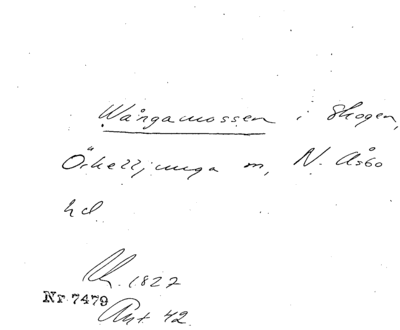 Wångamossen i Skogen,
Örkelljunga m, N. Åsbo
hd
1827
Nr 7479
Ant. 42.